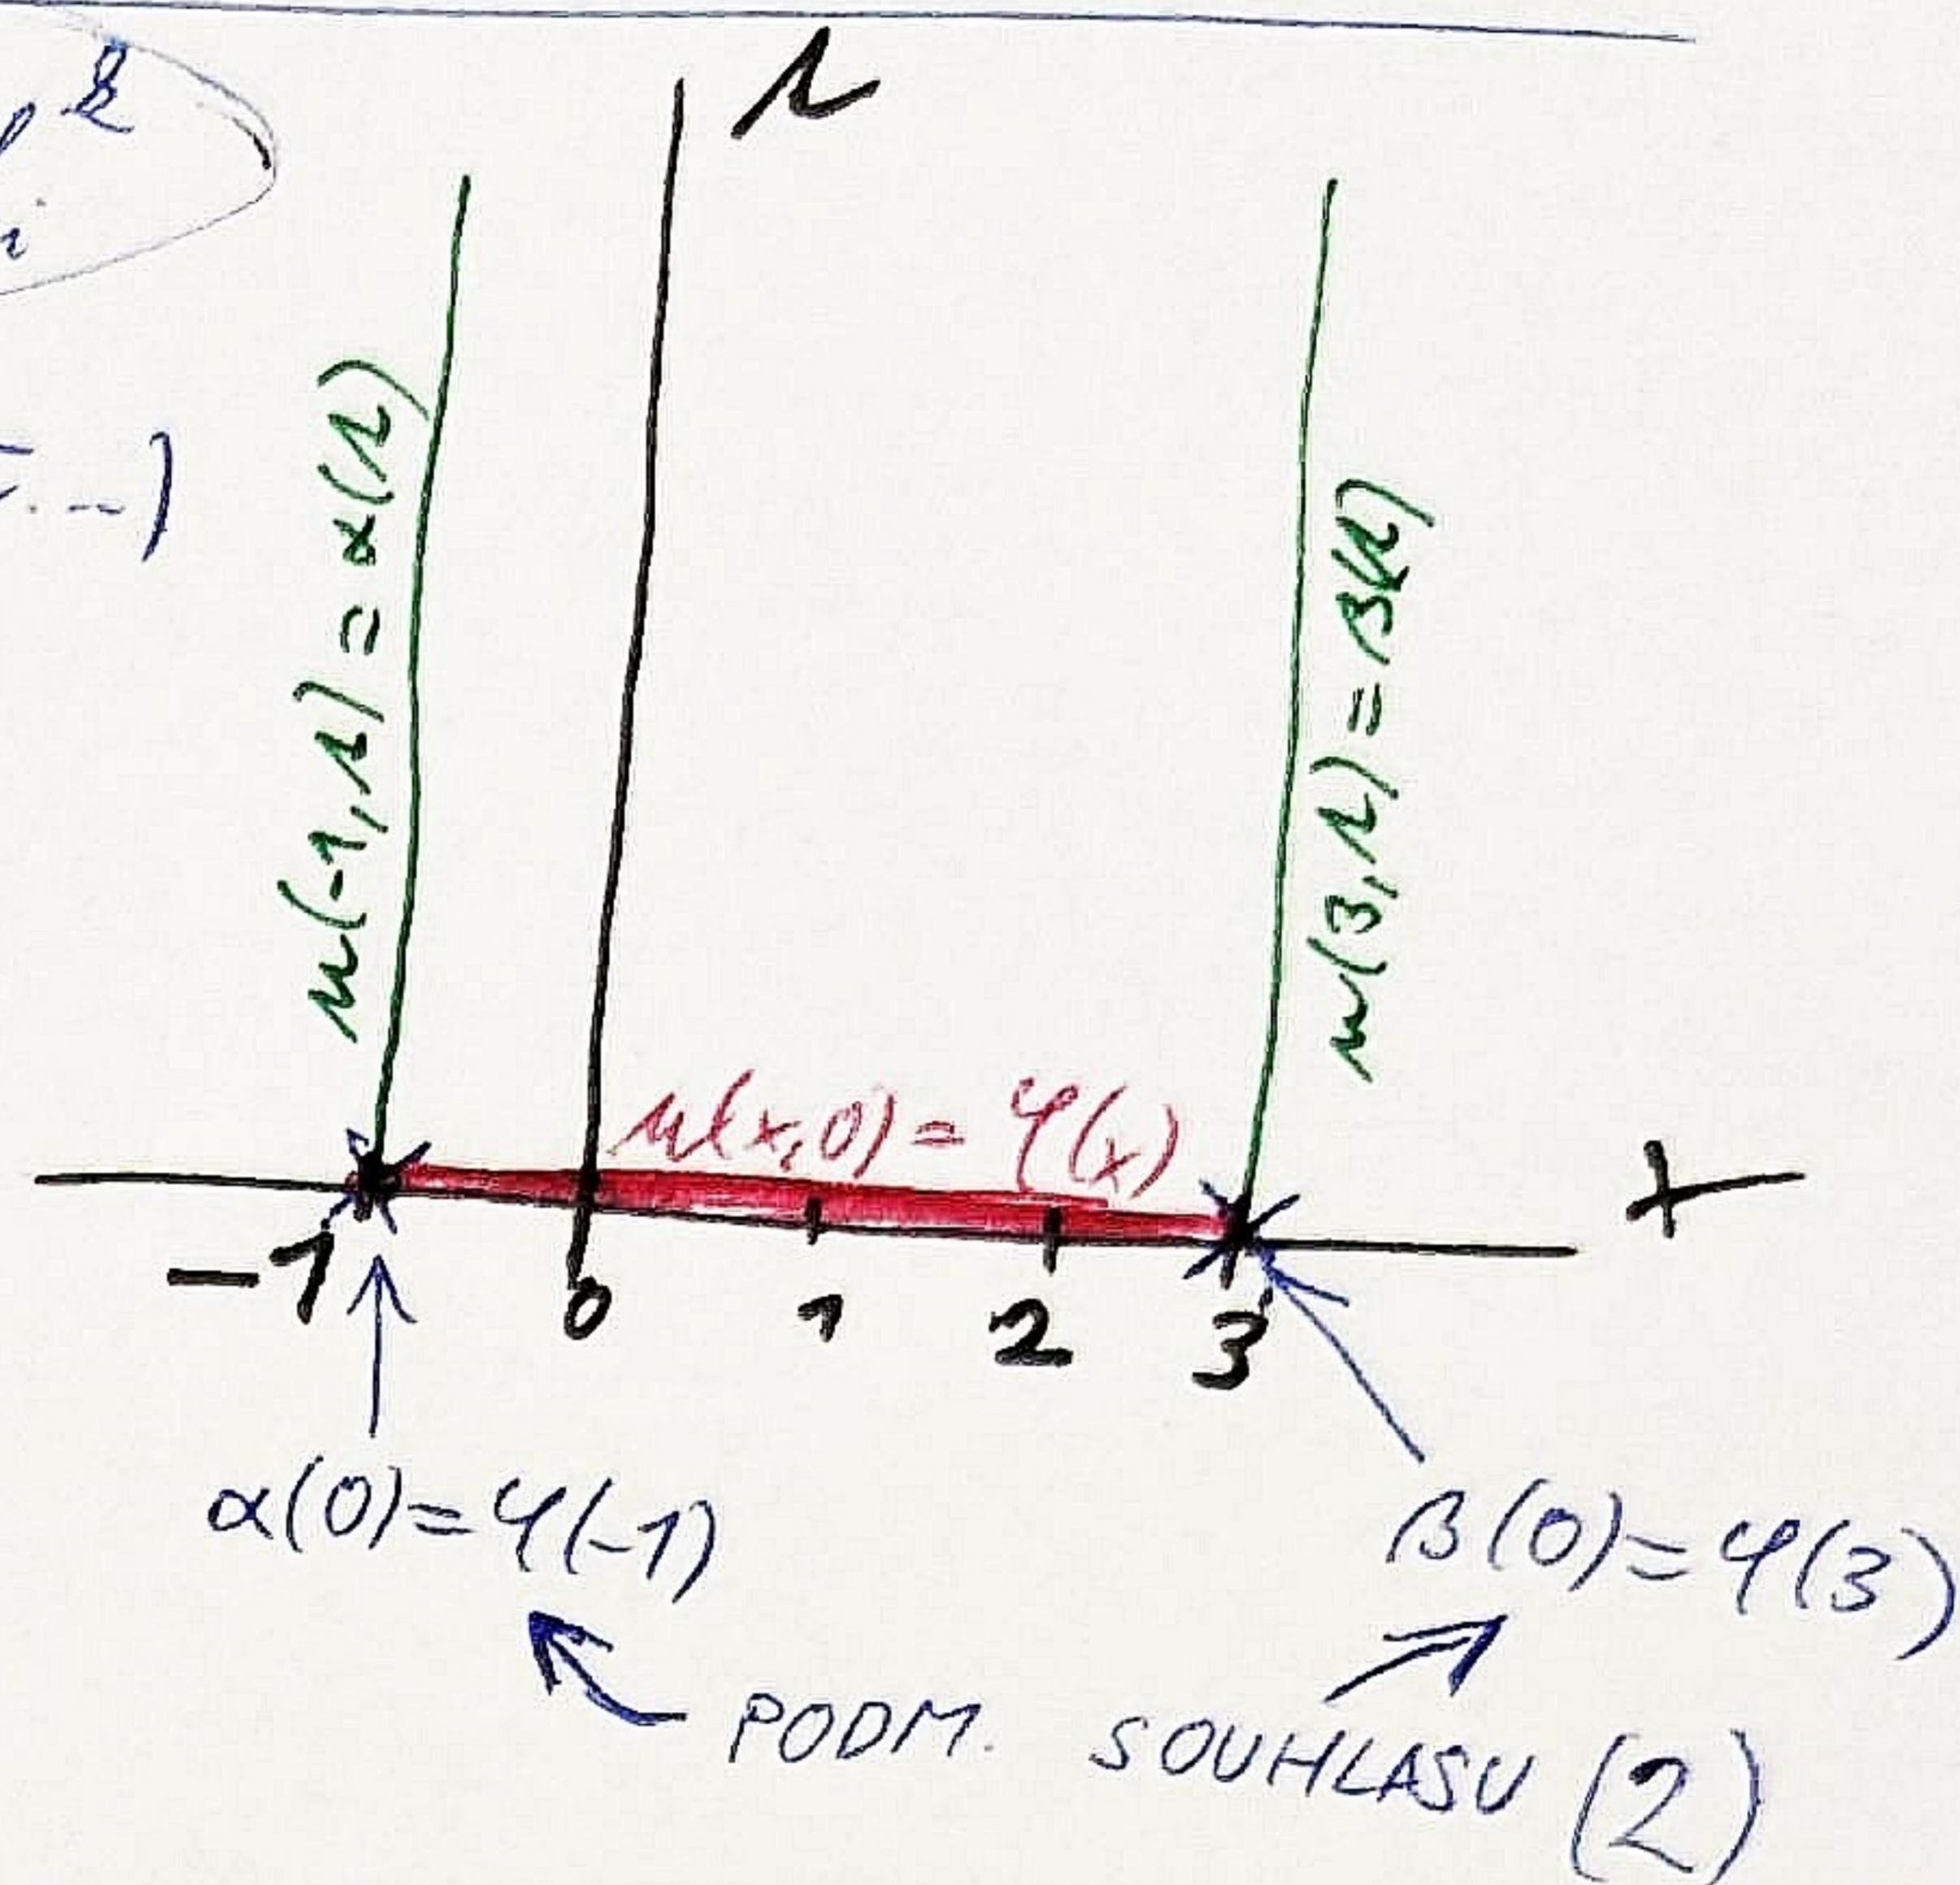 k
i
...)
t
u(-1,t) = α(t)
u(3,t) = β(t)
u(x,0) = φ(x)
x
-1 0 1 2 3
α(0) = φ(-1)
β(0) = φ(3)
PODM. SOUHLASU (2)